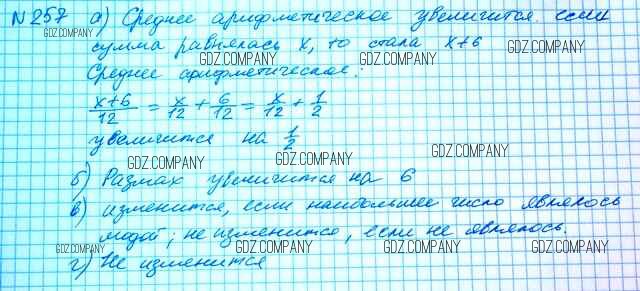 №257 а) Среднее арифметическое увеличится. если
сумма равнялась x, то стала x+6
Среднее арифметическое:
x+6/12 = x/12 + 6/12 = x/12 + 1/2
увеличится на 1/2
б) Размах увеличится на 6
в) изменится, если наибольшее число являлось
модой; не изменится, если не являлось.
г) Не изменится
GDZ.COMPANY GDZ.COMPANY GDZ.COMPANY
GDZ.COMPANY GDZ.COMPANY GDZ.COMPANY
GDZ.COMPANY GDZ.COMPANY GDZ.COMPANY
GDZ.COMPANY GDZ.COMPANY
GDZ.COMPANY GDZ.COMPANY GDZ.COMPANY GDZ.COMPANY